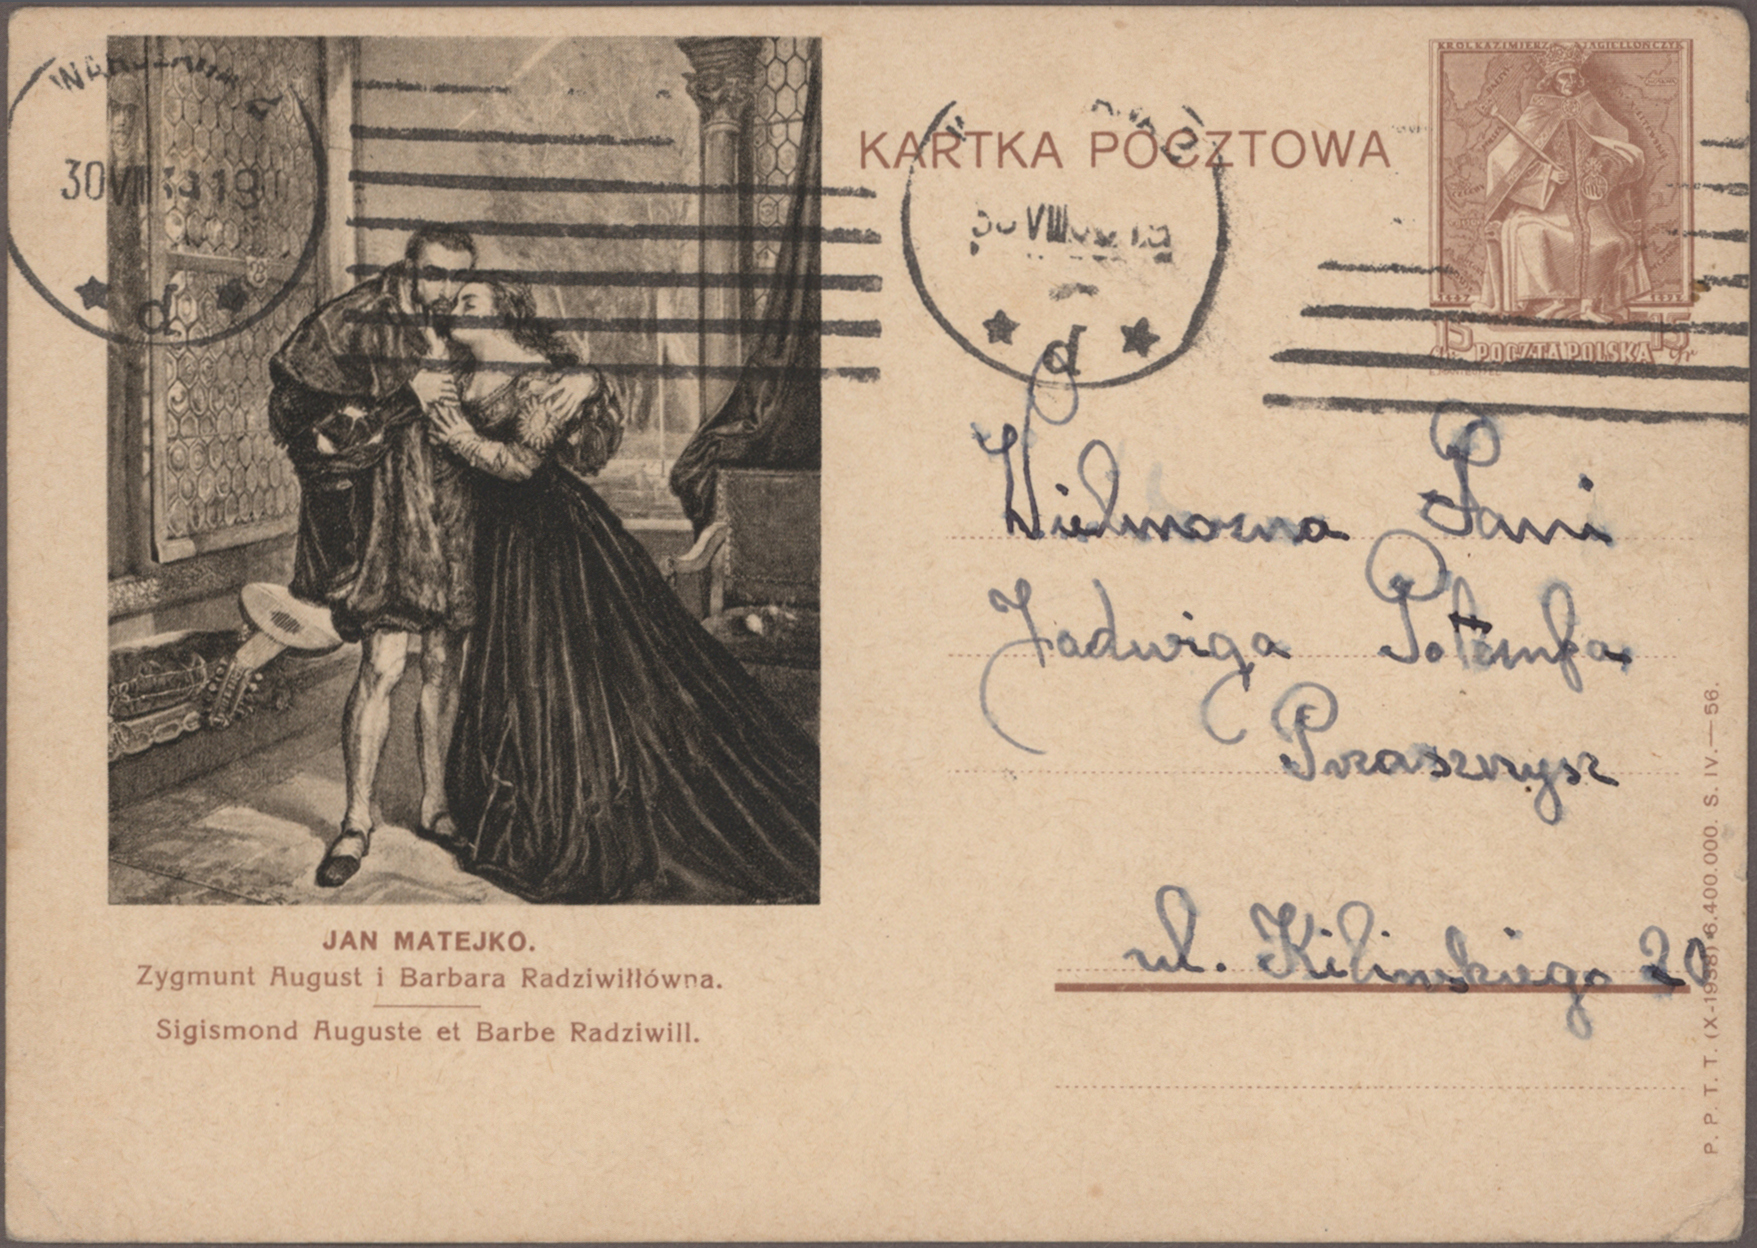 WARSZAWA 2
30 VIII 39 19
d
JAN MATEJKO.
Zygmunt August i Barbara Radziwiłłówna.
Sigismond Auguste et Barbe Radziwill.
KARTKA POCZTOWA
VIII
d
KRÓL KAZIMIERZ JAGIELLOŃCZYK
1447 1492
15 POCZTA POLSKA 15
gr
Wielmożna Pani
Jadwiga
Przasznysz
ul. Kilińskiego 20
P. P. T. T. (X-1938) 6.400.000. S. IV.—56.